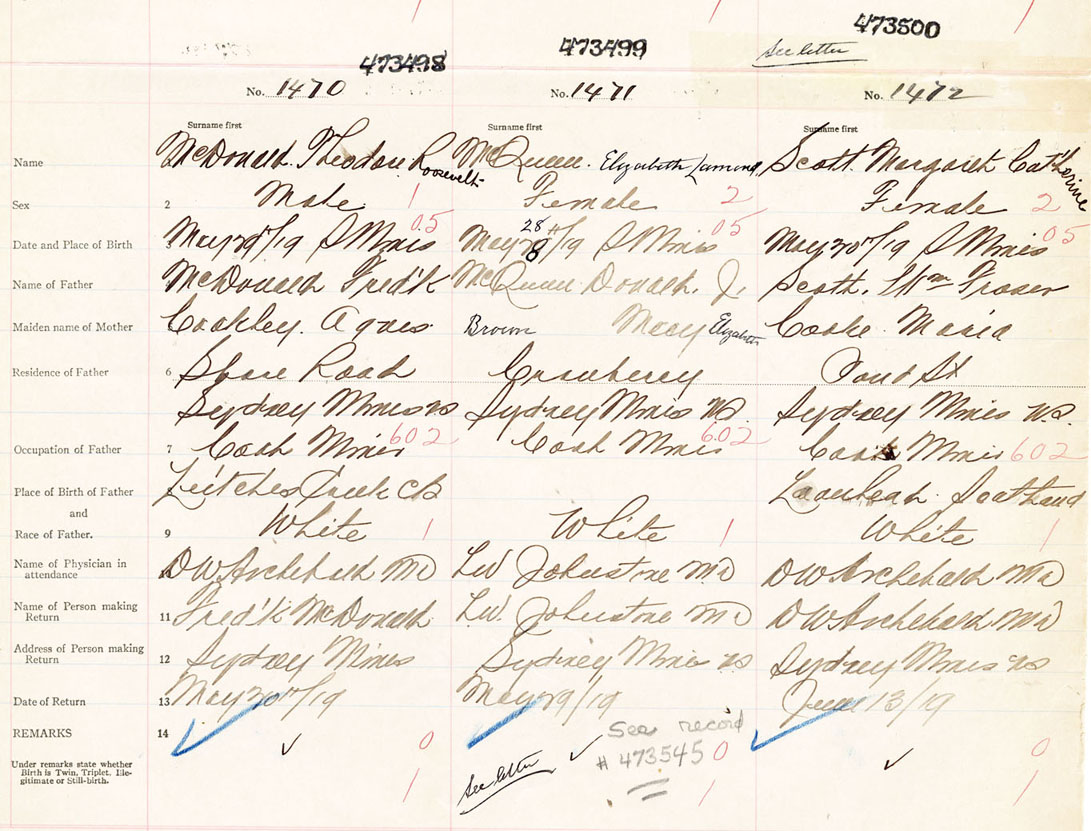 473498 473499 473500
See letter
No. 1470 No. 1471 No. 1472
Surname first Surname first Surname first
Name McDonald. Theodore Roosevelt McQueen. Elizabeth Lamond, Scott. Margaret Catherine
Sex 2 Male 1 Female 2 Female 2
05 28 05 05
Date and Place of Birth May /19 S Mines May 8/19 S Mines May /19 S Mines
Name of Father McDonald Fred'k McQueen Donald. J. Scott, Wm Fraser
Maiden name of Mother Coakley. Agnes Brown Mary Elizabeth Cooke Maria
Residence of Father 6 Shore Road Cranberry Pond St
Sydney Mines NS Sydney Mines NS. Sydney Mines NS.
Occupation of Father 7 Coal Miner 602 Coal Miner 602 Coal Miner 602
Place of Birth of Father Leitches Creek CB Scotland
and
Race of Father. 9 White 1 White 1 White 1
Name of Physician in
attendance DW Archibald MD LW Johnstone MD DW Archibald MD
Name of Person making
Return 11 Fred'k McDonald LW. Johnstone MD DW Archibald MD
Address of Person making
Return 12 Sydney Mines Sydney Mines NS Sydney Mines NS
Date of Return 13 May 30th/19 May 29/19 June 13/19
REMARKS 14 ✓ ✓ 0 ✓ ✓ See record 0 ✓ ✓ 0
# 473545
Under remarks state whether
Birth is Twin, Triplet, Ille-
gitimate or Still-birth.
See letter
1 1 1